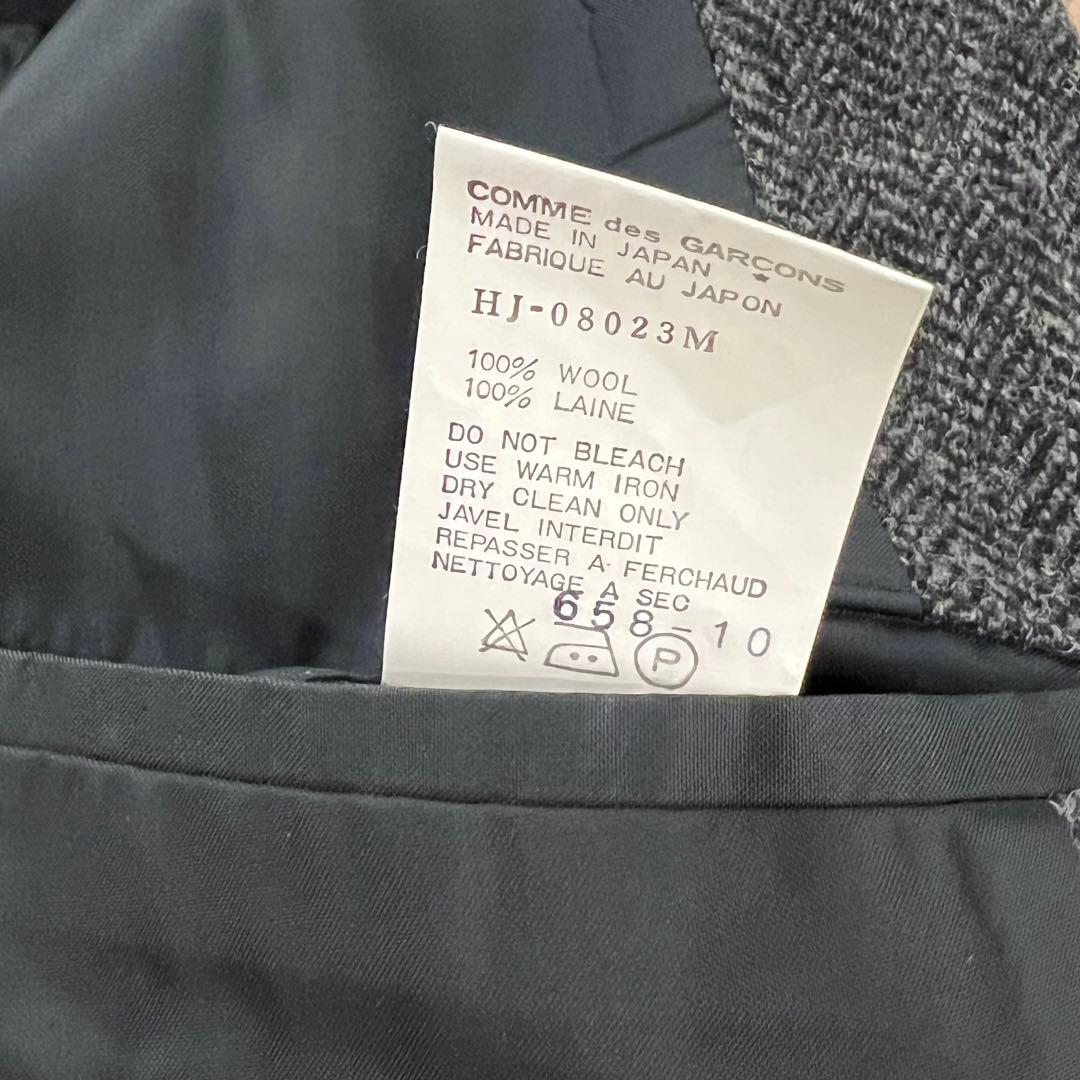 COMME des GARCONS
MADE IN JAPAN ★
FABRIQUE AU JAPON
HJ-08023M
100% WOOL
100% LAINE
DO NOT BLEACH
USE WARM IRON
DRY CLEAN ONLY
JAVEL INTERDIT
REPASSER A FERCHAUD
NETTOYAGE A SEC
658-10
P